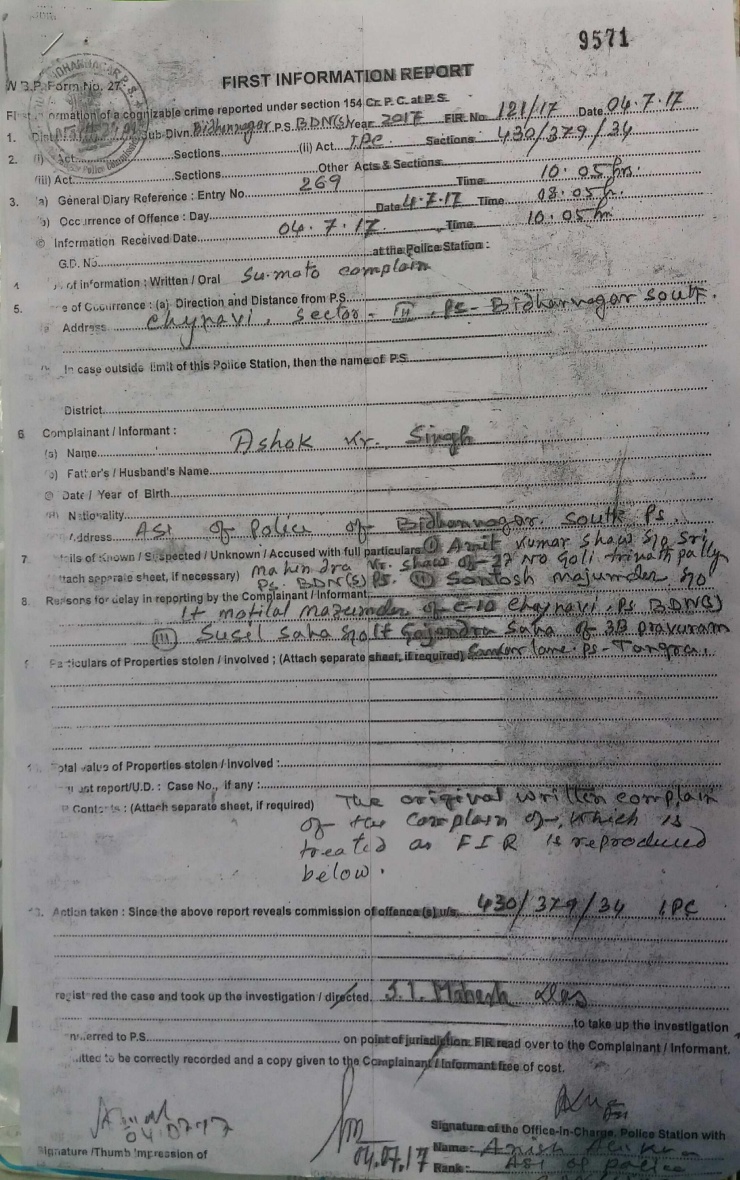 9571
W.B.P. Form No. 27
FIRST INFORMATION REPORT
First Information of a cognizable crime reported under section 154 Cr. P. C. at P.S.
1. Sub-Divn. Bidhannagar P.S. BDN(S) Year 2017 FIR. No. 121/17 Date 04.7.17
2. (i) Act Sections (ii) Act IPC Sections 430/379/34
(iii) Act Sections Other Acts & Sections
3. (a) General Diary Reference : Entry No. 269 Time 10.05 hrs.
b) Occurrence of Offence : Day Date 4.7.17 Time 08.05 hr.
© Information Received Date 04.7.17 Time 10.05 hr
G.D. No. at the Police Station :
of information : Written / Oral Su-moto complain
5. e of Occurrence : (a) Direction and Distance from P.S.
Address Chynavi, Sector - III, Ps- Bidhannagar South.
In case outside limit of this Police Station, then the name of P.S.
District
6 Complainant / Informant :
(a) Name Ashok Kr. Singh
) Father's / Husband's Name
© Date / Year of Birth
Nationality
Address ASI of Police of Bidhannagar South Ps.
7 ils of Known / Suspected / Unknown / Accused with full particulars (I) Amit Kumar Shaw S/o Sri
tach separate sheet, if necessary) Mahindra Kr. Shaw of 27 No Goli trinath pally
Ps. BDN(S) Ps. (II) Santosh majumder S/o
8. Reasons for delay in reporting by the Complainant / Informant
Lt motilal mazumder of C-10 Chaynavi, Ps BDN(S)
(III) Susil Saha S/o Lt Gajendra Saha of 3B
Particulars of Properties stolen / involved ; (Attach separate sheet, if required) lane. Ps- Tangra.
otal value of Properties stolen / involved :
st report/U.D. : Case No., if any :
Contents : (Attach separate sheet, if required) The original written complain
of the complain of, which is
treated as FIR is reproduced
below.
3. Action taken : Since the above report reveals commission of offence (s) u/s. 430/379/34 IPC
registered the case and took up the investigation / directed S.I. Mahesh Das
to take up the investigation
nsferred to P.S. on point of jurisdiction. FIR read over to the Complainant / Informant.
itted to be correctly recorded and a copy given to the Complainant / Informant free of cost.
04.07.17
04.07.17
Signature of the Office-in-Charge, Police Station with
Signature /Thumb Impression of
Name :
Rank : ASI of police